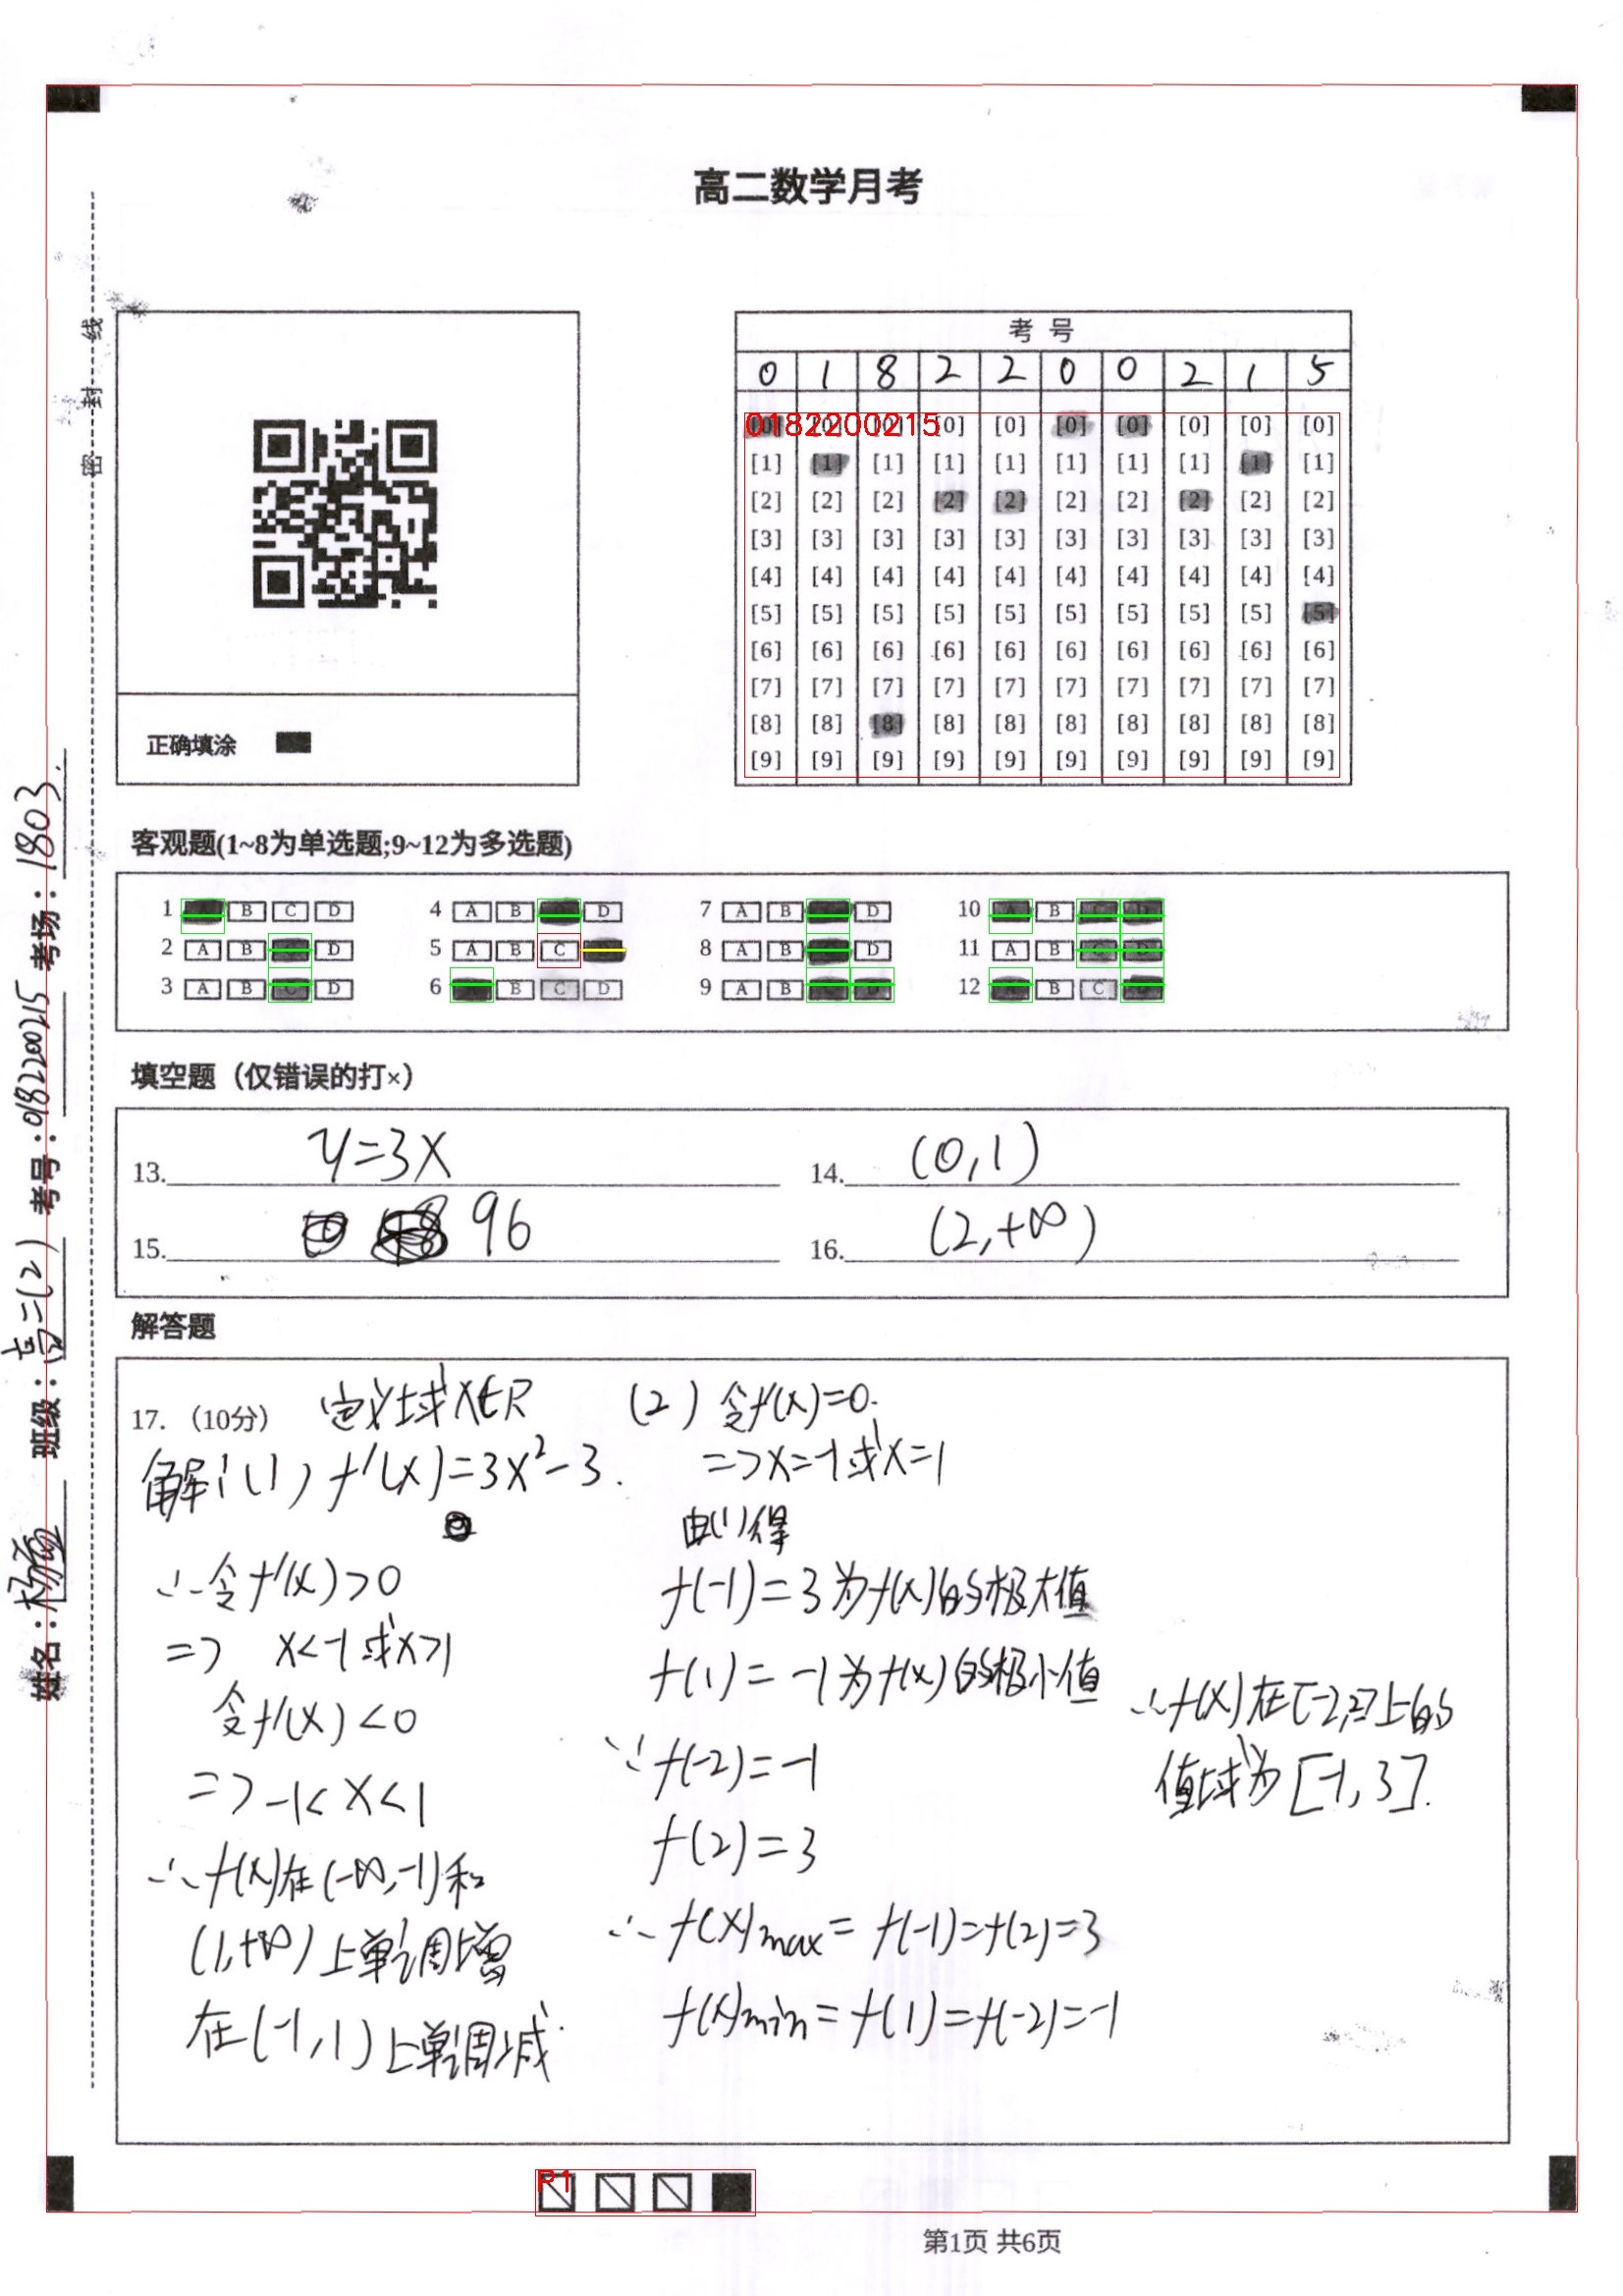 高二数学月考
线
封
密
考 号
0 1 8 2 2 0 0 2 1 5
0182200215
[0] [0] [0] [0] [0] [0] [0] [0] [0] [0]
[1] [1] [1] [1] [1] [1] [1] [1] [1] [1]
[2] [2] [2] [2] [2] [2] [2] [2] [2] [2]
[3] [3] [3] [3] [3] [3] [3] [3] [3] [3]
[4] [4] [4] [4] [4] [4] [4] [4] [4] [4]
[5] [5] [5] [5] [5] [5] [5] [5] [5] [5]
[6] [6] [6] [6] [6] [6] [6] [6] [6] [6]
[7] [7] [7] [7] [7] [7] [7] [7] [7] [7]
[8] [8] [8] [8] [8] [8] [8] [8] [8] [8]
[9] [9] [9] [9] [9] [9] [9] [9] [9] [9]
正确填涂
姓名: 班级:高二(2) 考号:0182200215 考场:1803.
客观题(1~8为单选题;9~12为多选题)
1 A B C D 4 A B C D 7 A B C D 10 A B C D
2 A B C D 5 A B C D 8 A B C D 11 A B C D
3 A B C D 6 A B C D 9 A B C D 12 A B C D
填空题（仅错误的打×）
13. y=3x 14. (0,1)
15. 96 16. (2,+∞)
解答题
17.（10分） 定义域x∈R
解:(1) f'(x)=3x²-3.
∴令f'(x)>0
=> x<-1或x>1
令f'(x)<0
=>-1<x<1
∴f(x)在(-∞,-1)和
(1,+∞)上单调增
在(-1,1)上单调减.
(2) 令f'(x)=0.
=>x=-1或x=1
由(1)得
f(-1)=3为f(x)的极大值
f(1)=-1为f(x)的极小值
∵f(-2)=-1
f(2)=3
∴f(x)max=f(-1)=f(2)=3
f(x)min=f(1)=f(-2)=-1
∴f(x)在[-2,2]上的
值域为[-1,3].
P1
第1页 共6页